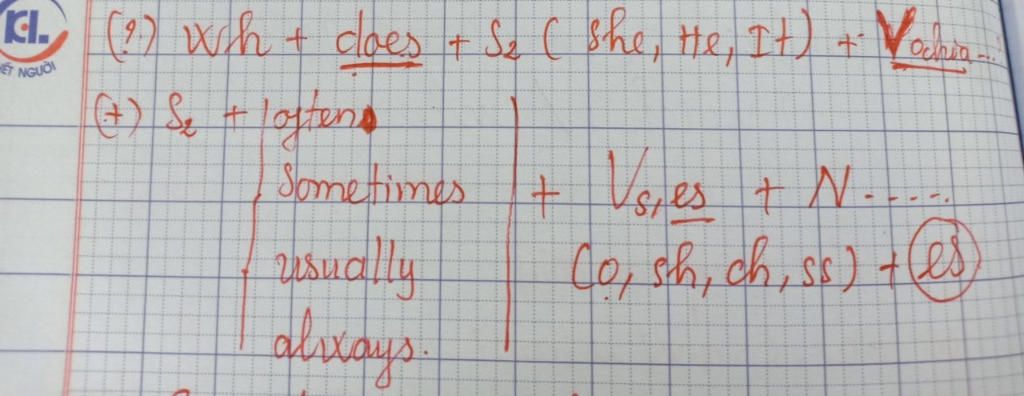 KL.
ẾT NGƯỜI
(?) Wh + does + S2 ( she, He, It) + Vochia...
(+) S2 + often
sometimes + Vs, es + N.....
usually (o, sh, ch, ss) + es
always.